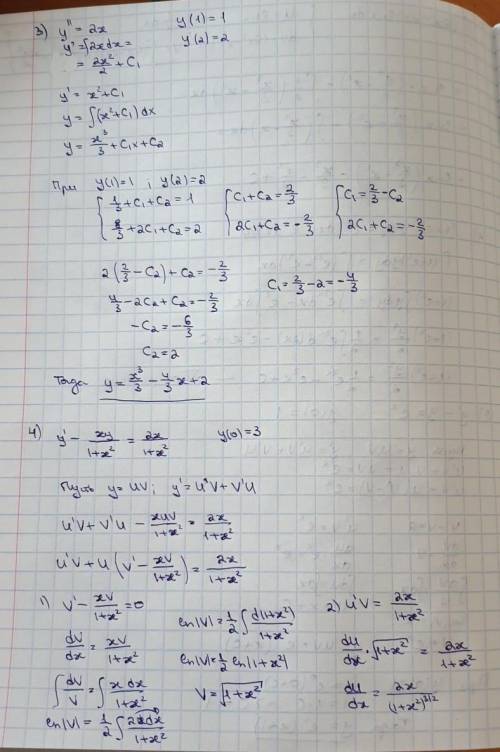 3) y'' = 2x y(1) = 1
y' = ∫2xdx = y(2) = 2
= 2x²/2 + C₁
y' = x² + C₁
y = ∫(x² + C₁) dx
y = x³/3 + C₁x + C₂
При y(1)=1 ; y(2)=2
{ 1/3 + C₁ + C₂ = 1 { C₁ + C₂ = 2/3 { C₁ = 2/3 - C₂
8/3 + 2C₁ + C₂ = 2 2C₁ + C₂ = -2/3 2C₁ + C₂ = -2/3
2(2/3 - C₂) + C₂ = -2/3
4/3 - 2C₂ + C₂ = -2/3 C₁ = 2/3 - 2 = -4/3
-C₂ = -6/3
C₂ = 2
Тогда y = x³/3 - 4/3 x + 2
4) y' - xy/(1+x²) = 2x/(1+x²) y(0) = 3
Пусть y = UV; y' = U'V + V'U
U'V + V'U - xUV/(1+x²) = 2x/(1+x²)
U'V + U (V' - xV/(1+x²)) = 2x/(1+x²)
1) V' - xV/(1+x²) = 0
dV/dx = xV/(1+x²)
∫ dV/V = ∫ x dx/(1+x²)
ln|V| = 1/2 ∫ 2xdx/(1+x²)
ln|V| = 1/2 ∫ d(1+x²)/(1+x²)
ln|V| = 1/2 ln(1+x²)
V = √(1+x²)
2) U'V = 2x/(1+x²)
dU/dx · √(1+x²) = 2x/(1+x²)
dU/dx = 2x/(1+x²)^(3/2)